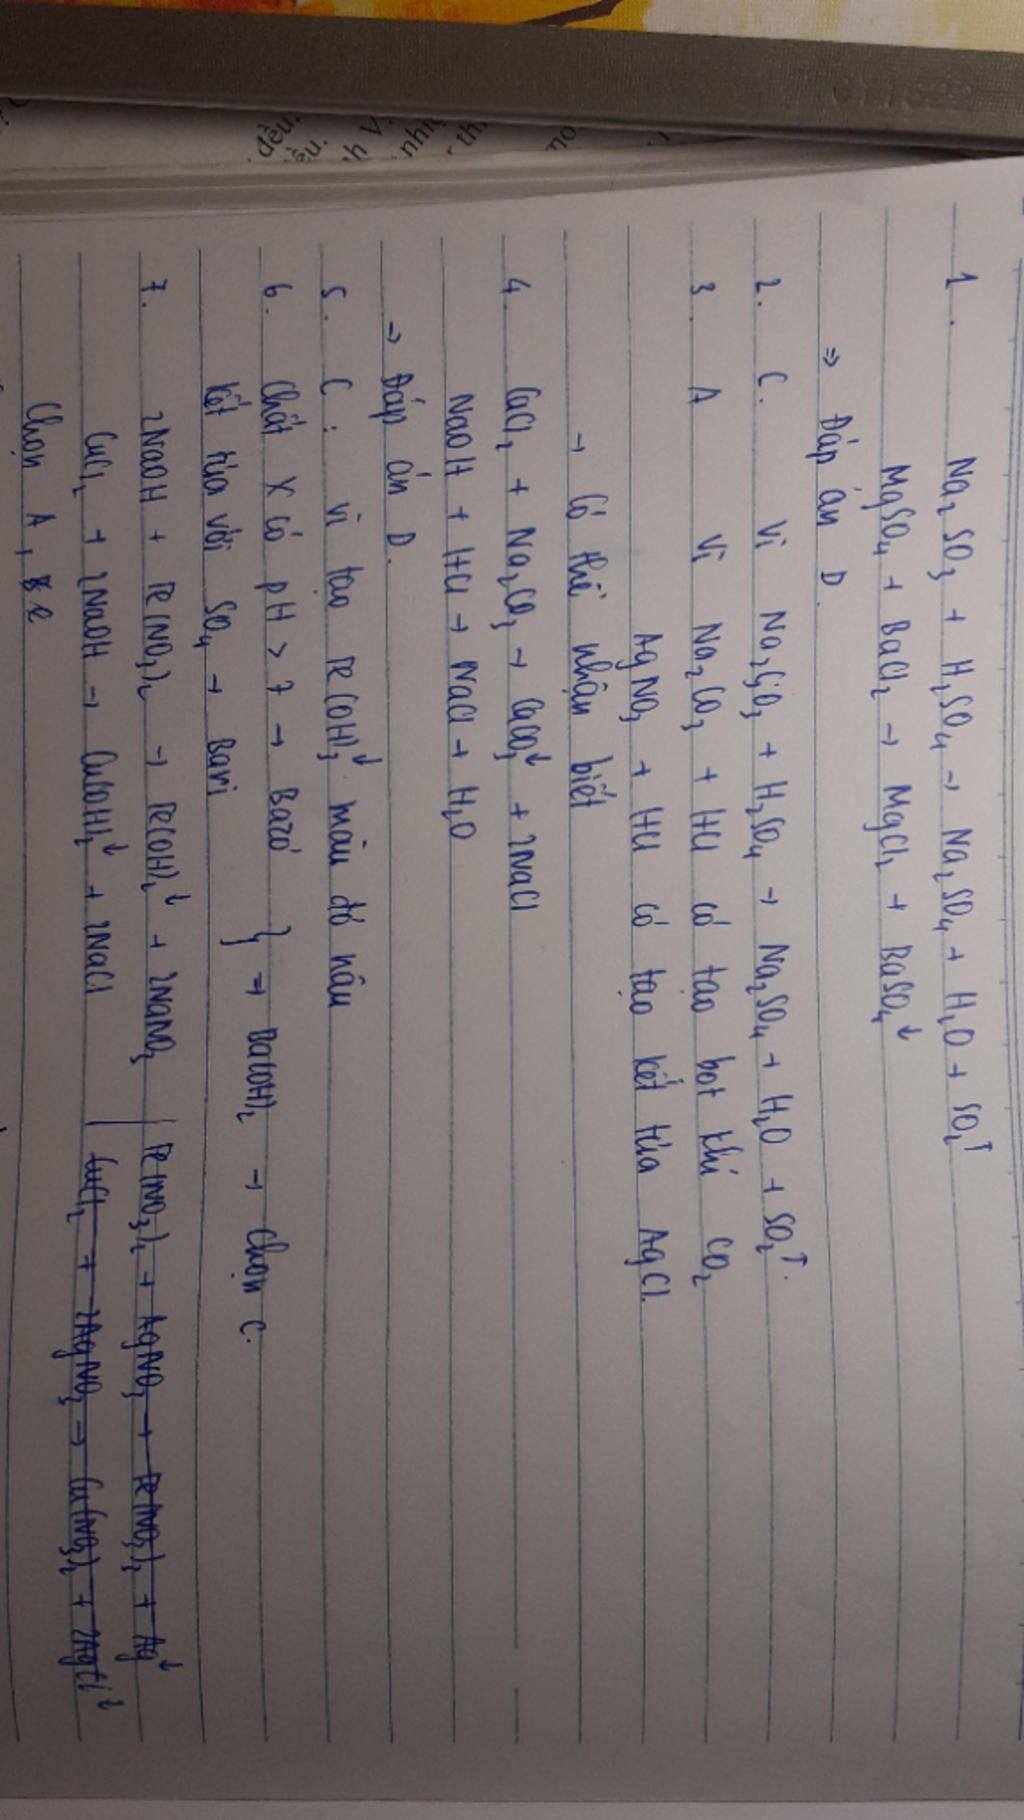 1. Na₂SO₃ + H₂SO₄ → Na₂SO₄ + H₂O + SO₂↑
MgSO₄ + BaCl₂ → MgCl₂ + BaSO₄↓
⇒ Đáp án D
2. C. Vì Na₂SO₃ + H₂SO₄ → Na₂SO₄ + H₂O + SO₂↑.
3. A Vì Na₂CO₃ + HCl có tạo bọt khí CO₂
AgNO₃ + HCl có tạo kết tủa AgCl.
→ Có thể nhận biết
4. CaCl₂ + Na₂CO₃ → CaCO₃↓ + 2NaCl
NaOH + HCl → NaCl + H₂O
→ Đáp án D.
5. C : vì tạo Fe(OH)₃↓ màu đỏ nâu
6. Chất X có pH > 7 → Bazơ
kết tủa với SO₄ → Bari } ⇒ Ba(OH)₂ → Chọn C.
7. 2NaOH + Fe(NO₃)₂ → Fe(OH)₂↓ + 2NaNO₃ | Fe(NO₃)₂ + AgNO₃ → Fe(NO₃)₃ + Ag↓
CuCl₂ + 2NaOH → Cu(OH)₂↓ + 2NaCl | CuCl₂ + 2AgNO₃ → Cu(NO₃)₂ + 2AgCl↓
Chọn A,
đều.
nhi
th